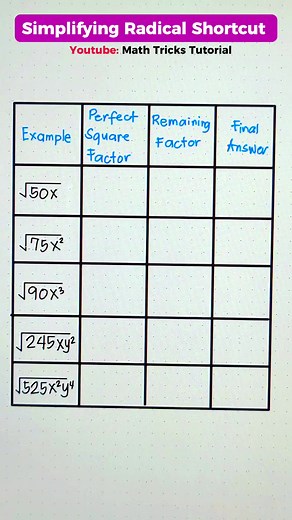 Simplifying Radical Shortcut
Youtube: Math Tricks Tutorial
Example
Perfect
Square
Factor
Remaining
Factor
Final
Answer
√50x
√75x²
√90x³
√245xy²
√525x²y⁴